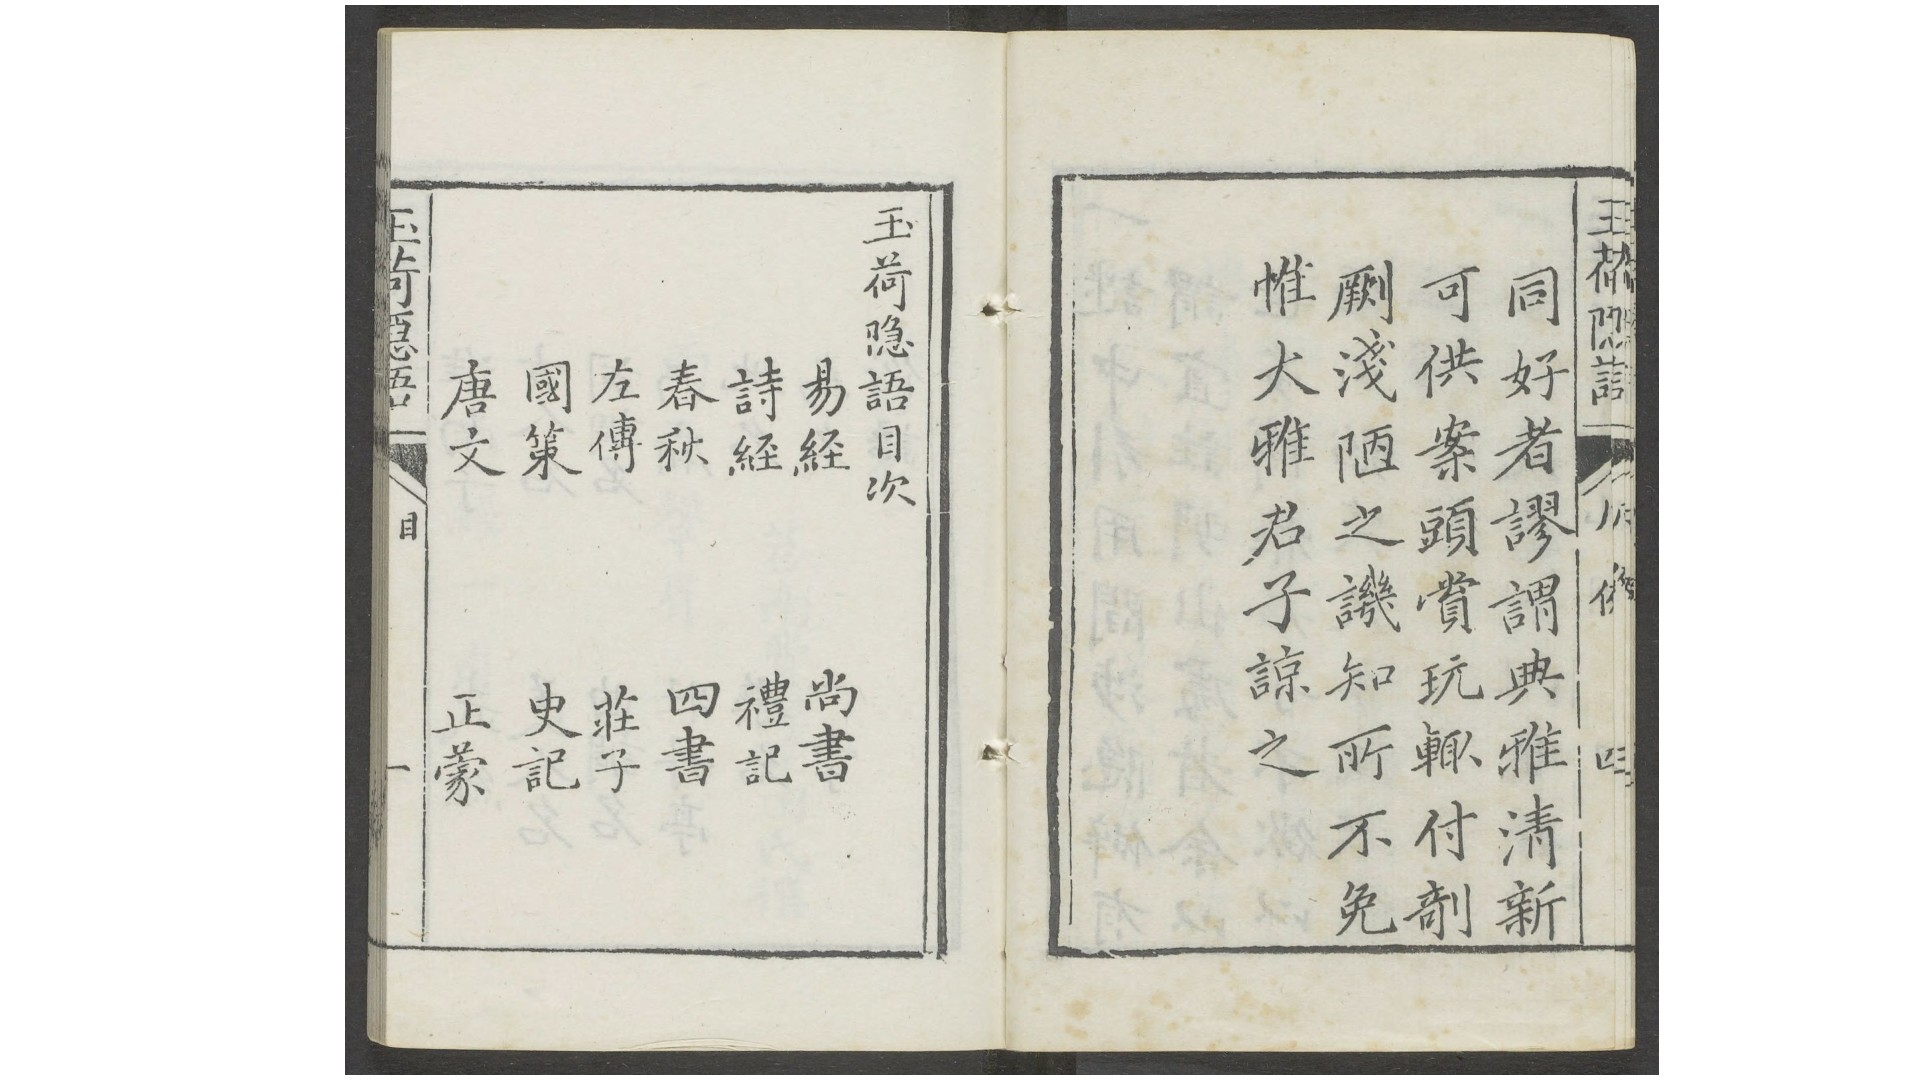 同好者謬謂典雅清新
可供案頭賞玩輙付剞
劂淺陋之譏知所不免
惟大雅君子諒之
玉荷隐語目次
易経
尚書
詩経
禮記
春秋
四書
左傳
莊子
國策
史記
唐文
正蒙
玉荷隱語
目
一